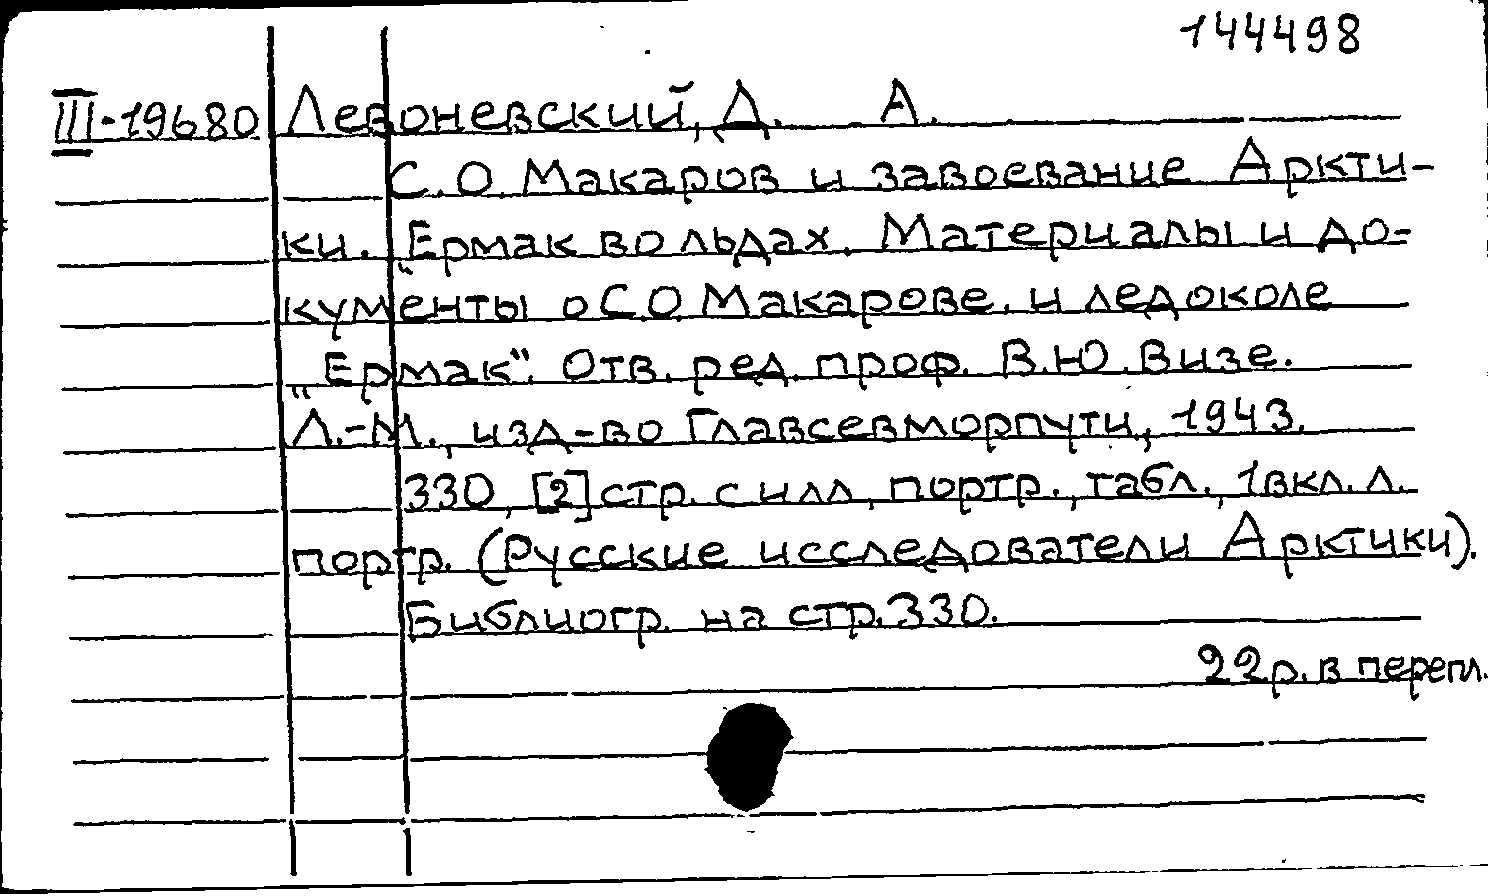 144498
III-19680 Левоневский, Д. А.
С.О. Макаров и завоевание Аркти-
ки. „Ермак во льдах. Материалы и до-
кументы о С.О Макарове. и ледоколе
„Ермак“. Отв. ред. проф. В.Ю. Визе.
Л.-М., изд-во Главсевморпути, 1943.
330, [2] стр. с илл., портр., табл., 1 вкл. л.
портр. (Русские исследователи Арктики).
Библиогр. на стр. 330.
22 р. в перепл.